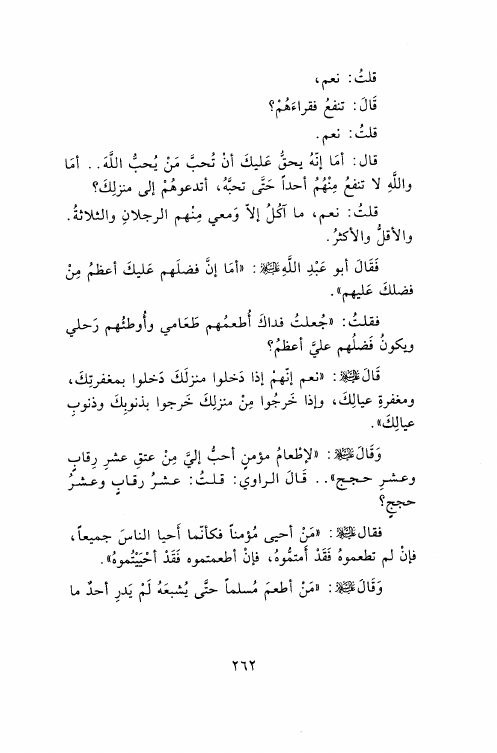 قلتُ: نعم،
قَالَ: تنفعُ فقراءَهُمْ؟
قلتُ: نعم.
قال: أمَا إنّهُ يحقُّ عَليكَ أنْ تُحبَّ مَنْ يُحبُّ اللَّهَ.. أمَا
واللَّهِ لا تنفعُ مِنْهُمُ أحداً حَتَّى تحبَّهُ، أتدعوهُمْ إلى منزلِكَ؟
قلتُ: نعم، ما آكُلُ إلاّ وَمعي مِنْهم الرجلانِ والثلاثةُ.
والأقلُّ والأكثرُ.
فَقَالَ أبو عَبْدِ اللَّهِ عليه السلام: «أمَا إنَّ فضلَهم عَليكَ أعظمُ مِنْ
فضلكَ عَليهم».
فقلتُ: «جُعلتُ فداكَ أُطعمُهم طَعَامي وأُوطئُهم رَحلي
ويكونُ فَضلُهم عليَّ أعظمُ؟
قَالَ عليه السلام: «نعم إنّهمْ إذا دَخلوا منزلَكَ دَخلوا بمغفرتِكَ،
ومغفرةِ عيالِكَ، وإذا خَرجُوا مِنْ منزلِكَ خَرجوا بذنوبِكَ وذنوبِ
عيالِكَ».
وَقَالَ عليه السلام: «لإطْعامُ مؤمنٍ أحبُّ إليَّ مِنْ عتقِ عشرِ رِقابٍ
وعشرِ حججٍ».. قَالَ الراوي: قلتُ: عشرُ رقابٍ وعشرُ
حججٍ؟
فقال عليه السلام: «مَنْ أحيى مُؤمناً فكأنّما أَحيا الناسَ جميعاً،
فإنْ لم تطعموهُ فَقَدْ أَمتمُّوهُ، فإنْ أطعمتموه فَقَدْ أحْيَيْتُموهُ».
وَقَالَ عليه السلام: «مَنْ أطعمَ مُسلماً حتَّى يُشبعَهُ لَمْ يَدرِ أحدٌ ما
٢٦٢